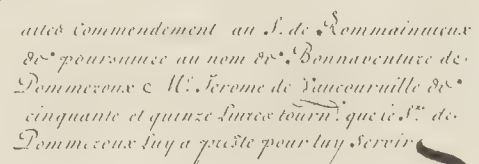 autes commendement au S. de Rommainueux
de poursuiuee au nom de Bonnaventure de
Pommezoux c Mr. Jerome de Vaucouruille de
cinquante et quinze Liures tourn. que le Sr. de
Pommezeux luy a preste pour luy Servir